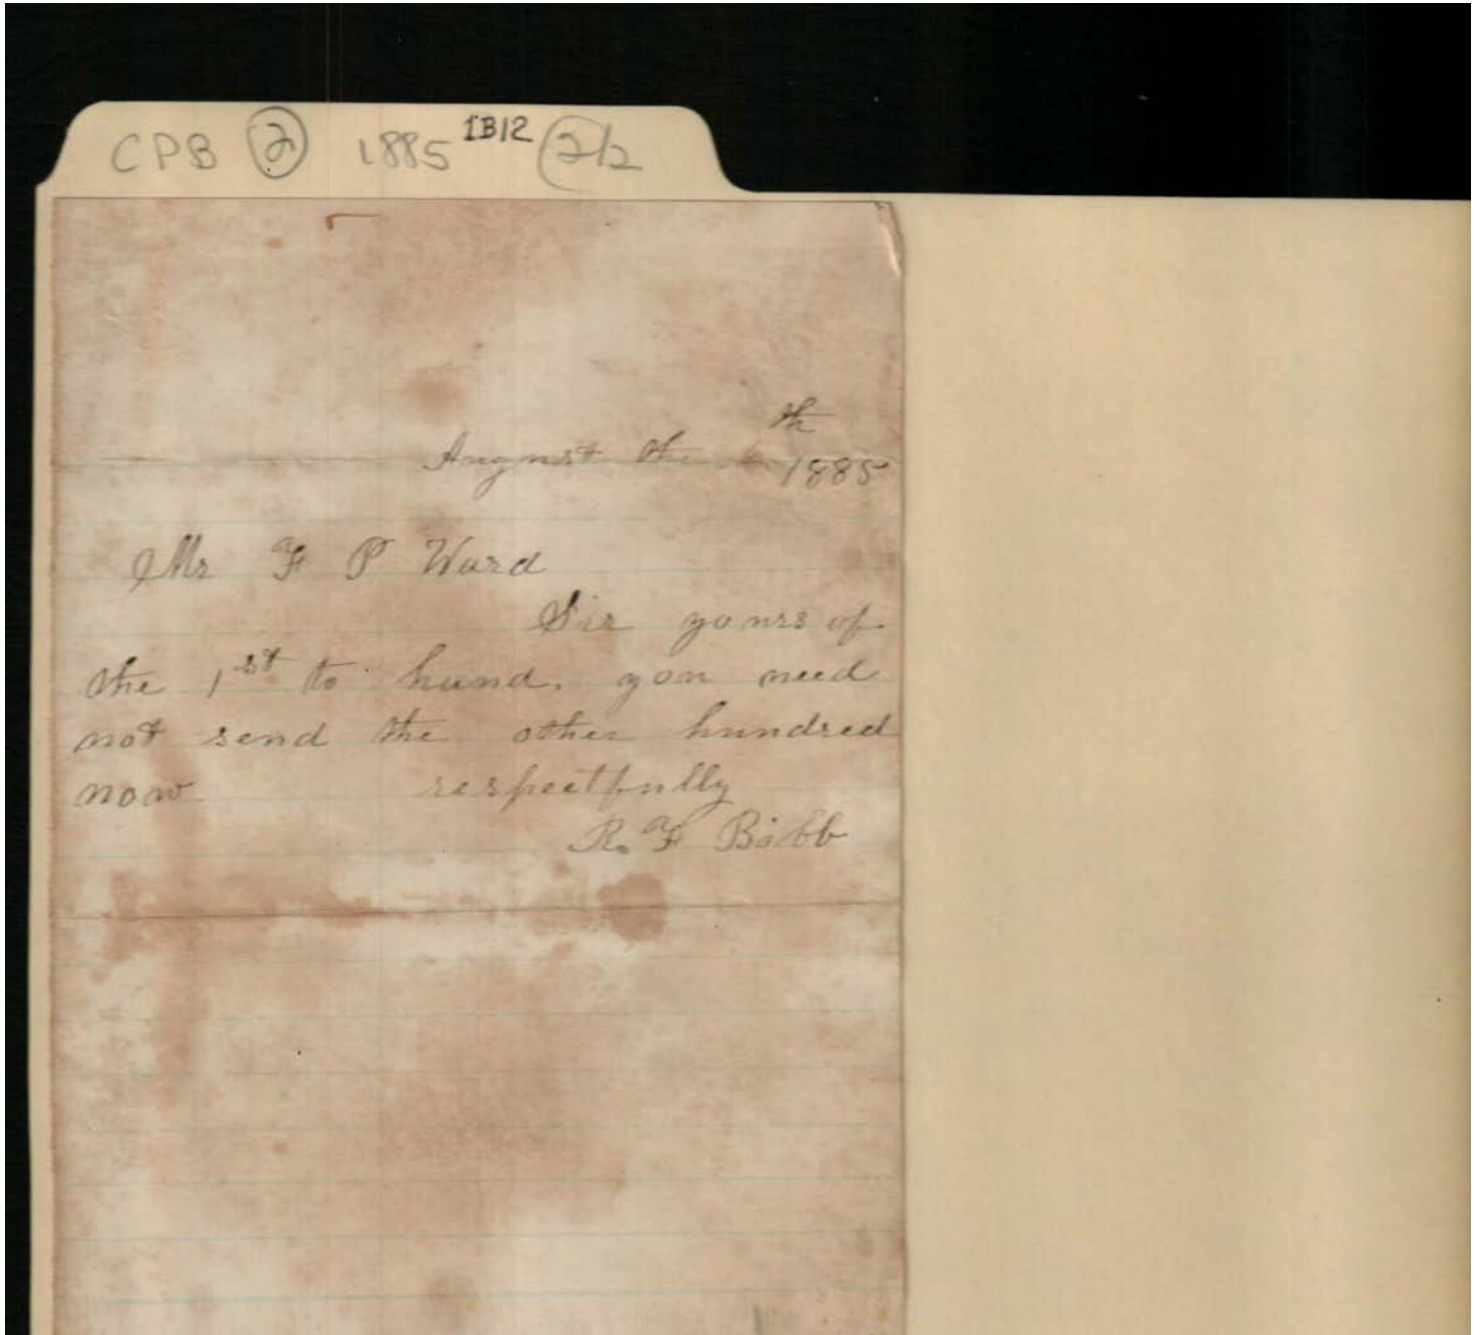 CPB 2 1885 IB12 2/2
August the 6th 1885
Mr F P Ward
Sir yours of
the 1st to hand. you need
not send the other hundred
now respectfully
R. F Bibb